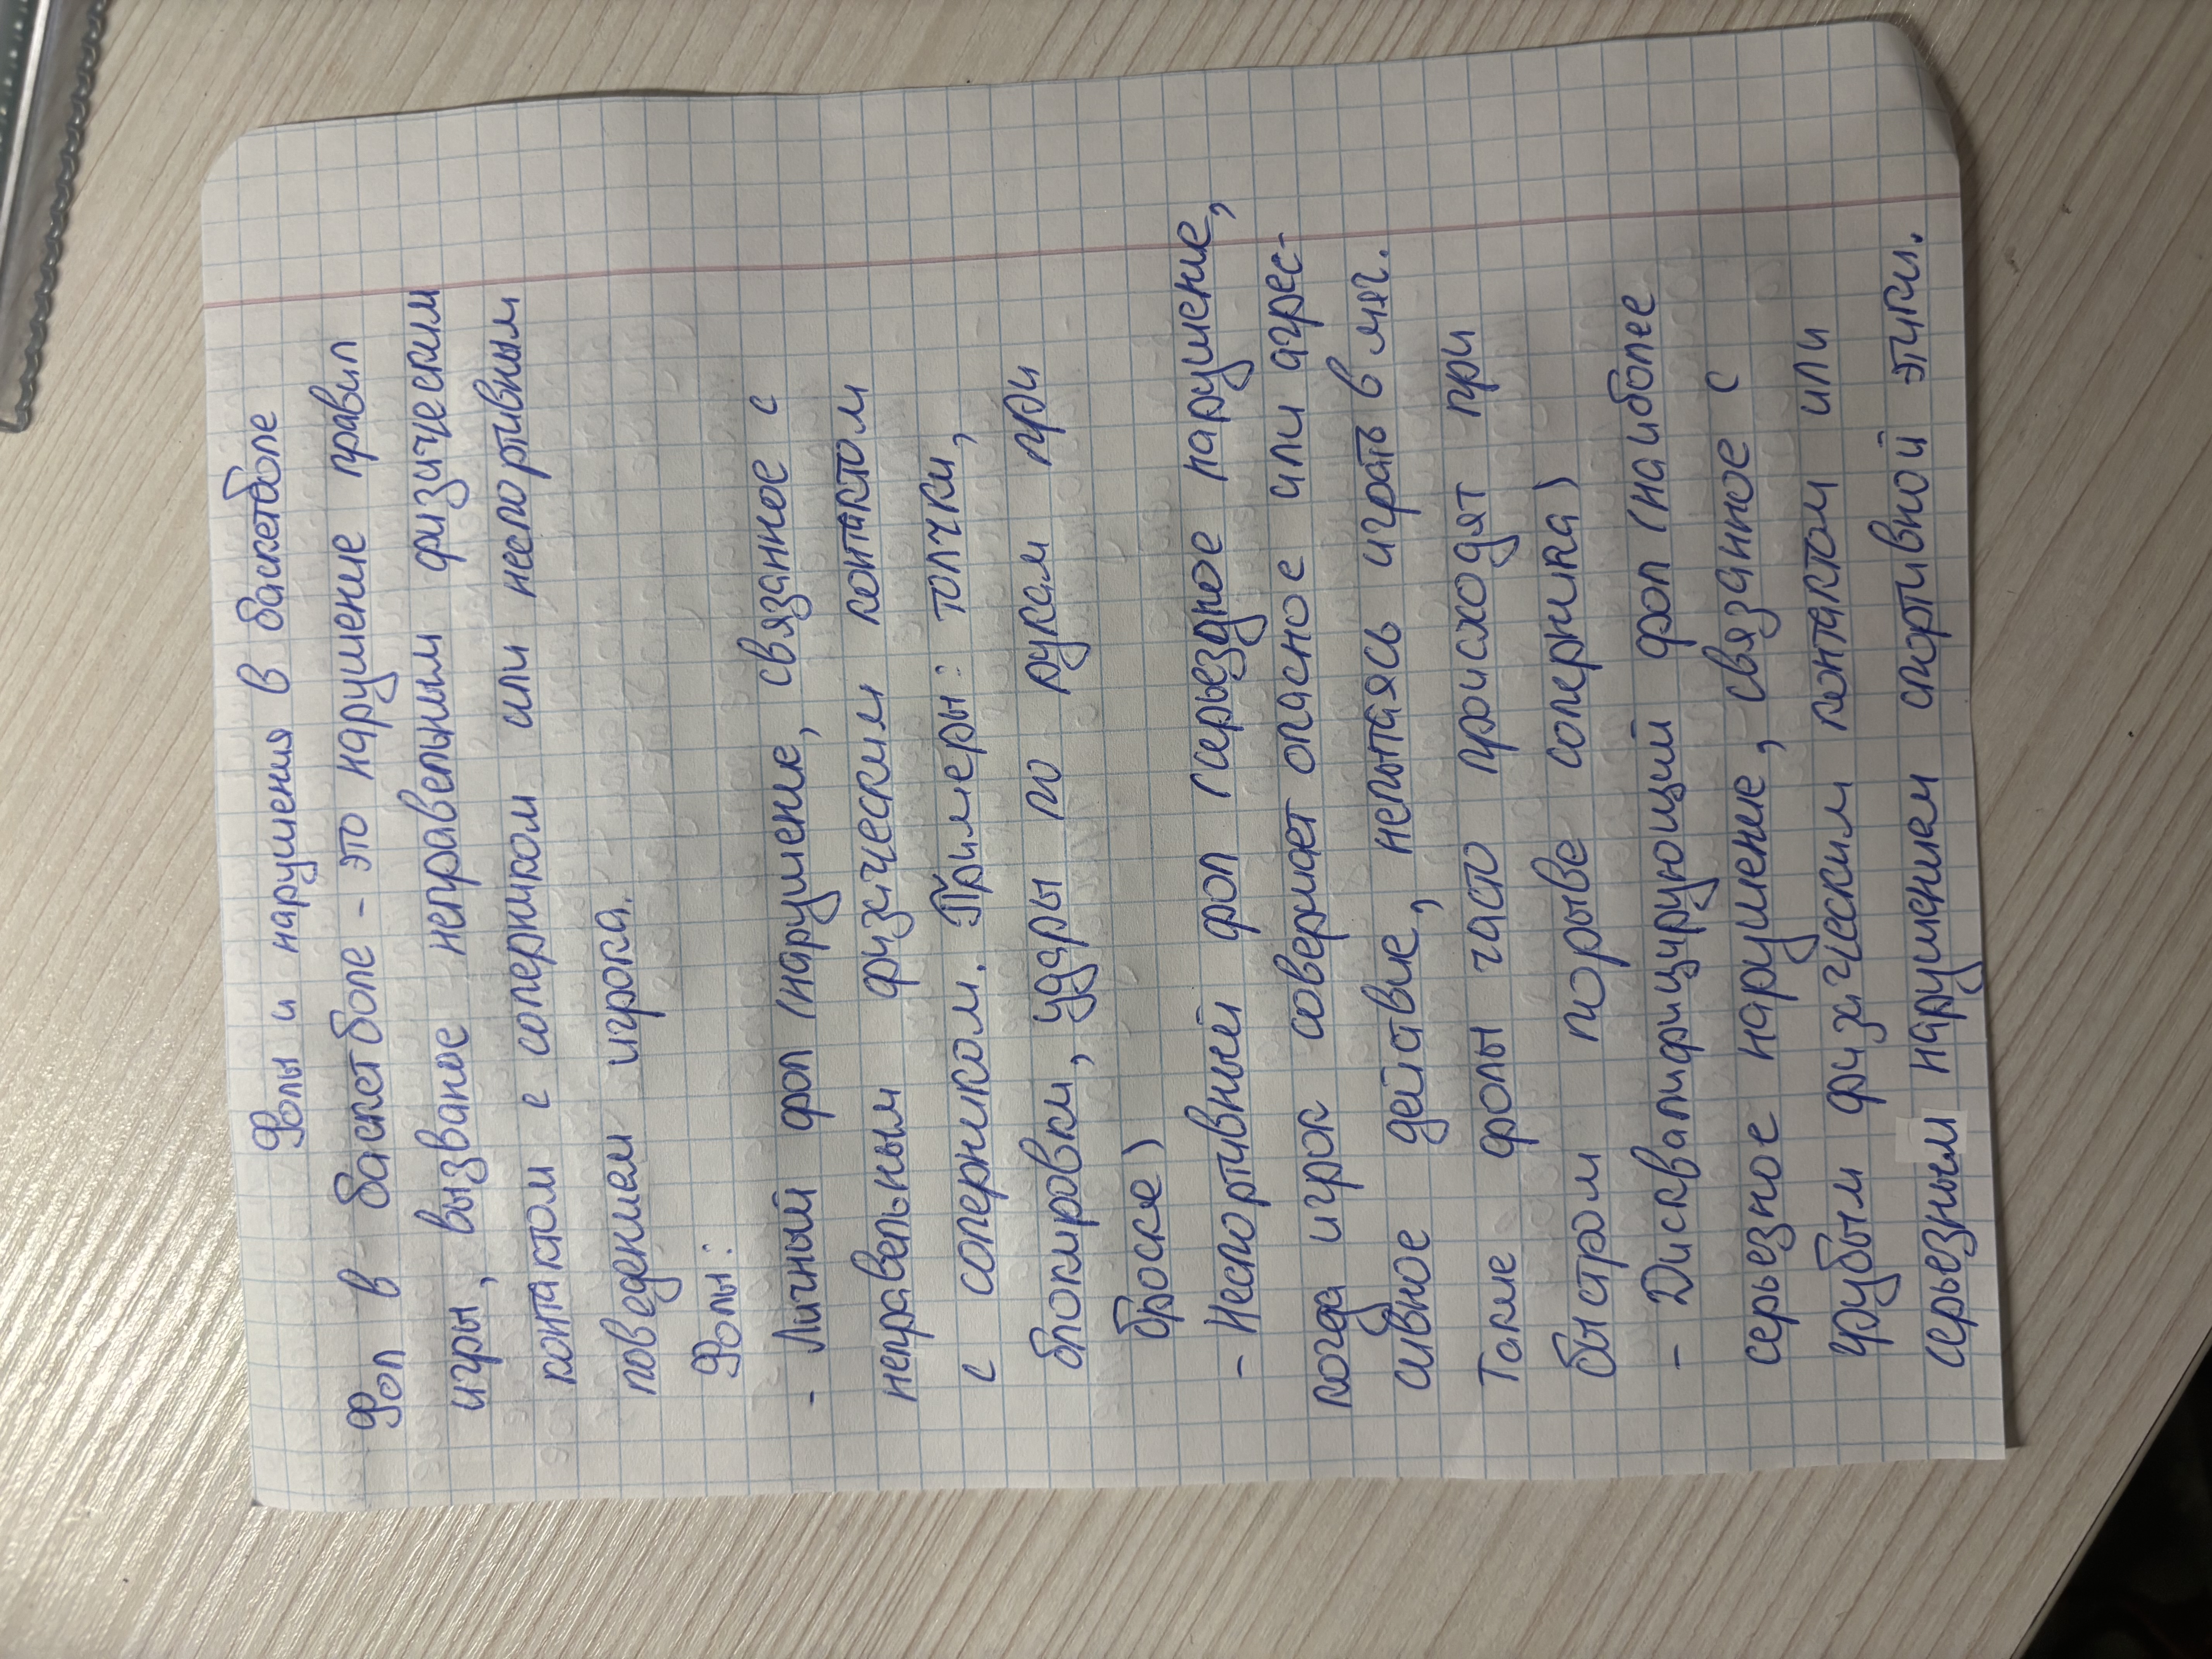 Фолы и нарушения в баскетболе
Фол в баскетболе - это нарушение правил
игры, вызваное неправельным физическим
контактом с соперником или неспортивным
поведением игрока.
Фолы:
- Личный фол (нарушение, связанное с
неправельным физическим контактом
с соперником. Примеры: толчки,
блокировки, удары по рукам при
броске)
- Неспортивный фол (серьездное нарушение,
когда игрок совершает опасное или агрес-
сивное действие, непытаясь играть в мяч.
Такие фолы часто происходят при
быстром порыве соперника)
- Дисквалифицирующий фол (наиболее
серьезное нарушение, связанное с
грубым физическим контактом или
серьезным нарушением спортивной этики.